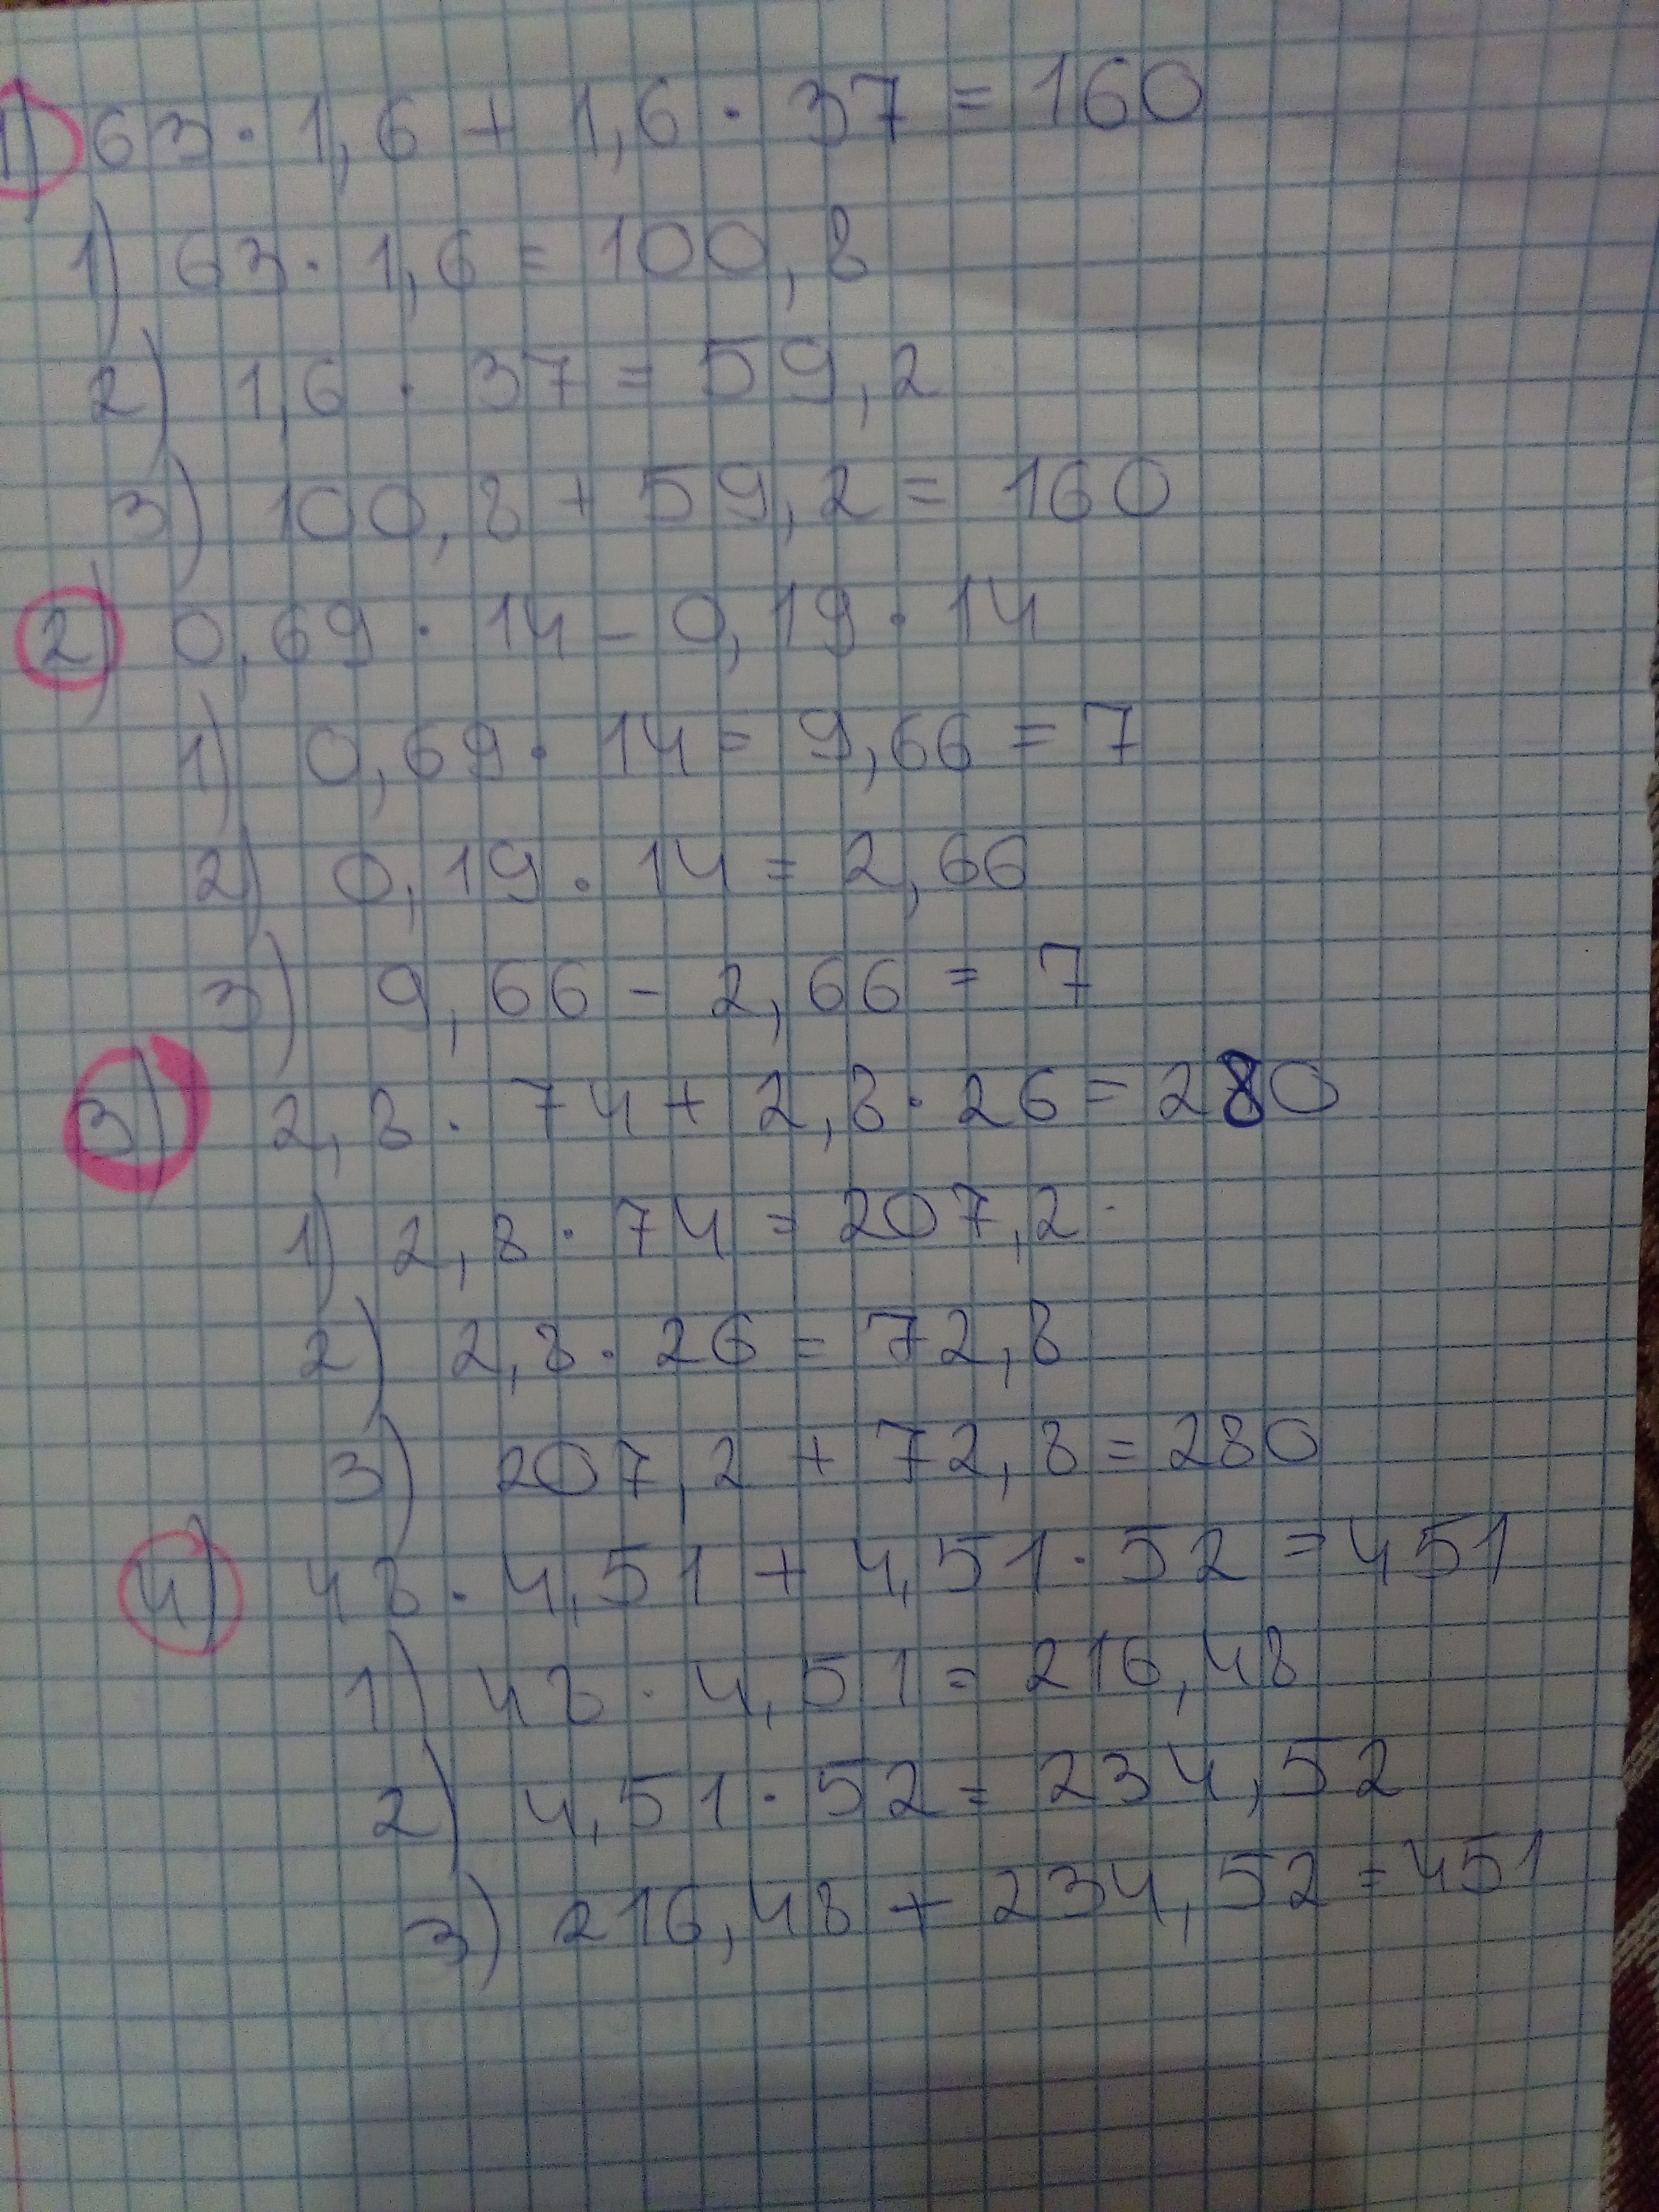 1) 63 · 1,6 + 1,6 · 37 = 160
1) 63 · 1,6 = 100,8
2) 1,6 · 37 = 59,2
3) 100,8 + 59,2 = 160
2) 0,69 · 14 - 0,19 · 14
1) 0,69 · 14 = 9,66 = 7
2) 0,19 · 14 = 2,66
3) 9,66 - 2,66 = 7
3) 2,8 · 74 + 2,8 · 26 = 280
1) 2,8 · 74 = 207,2
2) 2,8 · 26 = 72,8
3) 207,2 + 72,8 = 280
4) 48 · 4,51 + 4,51 · 52 = 451
1) 48 · 4,51 = 216,48
2) 4,51 · 52 = 234,52
3) 216,48 + 234,52 = 451